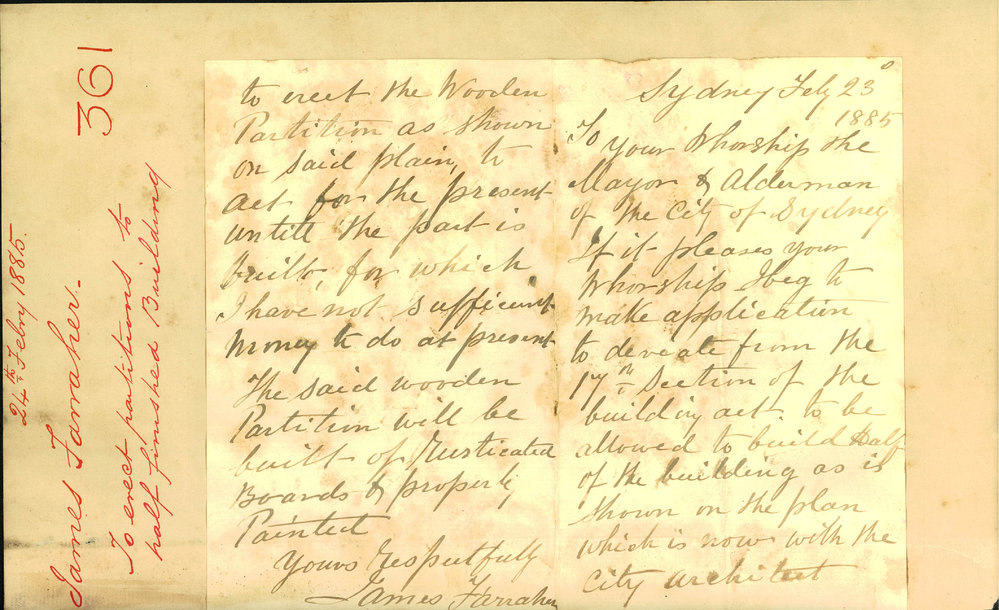 361
24th Febry 1885.
James Farraher.
To erect partitions to
half finished Building
Sydney Feby 23
1885
To your Whorship the
Mayor & Alderman
of the City of Sydney
If it pleases your
Whorship I beg to
make application
to deveate from the
17th Section of the
building act. to be
allowed to build half
of the building as is
shown on the plan
which is now with the
City architect
to erect the Wooden
Partition as shown
on said plain, to
act for the present
untill the part is
built, for which
I have not sufficient
money to do at present
The said wooden
Partition will be
built of Rusticated
Boards & properly
Painted
Yours Respectfully
James Farraher